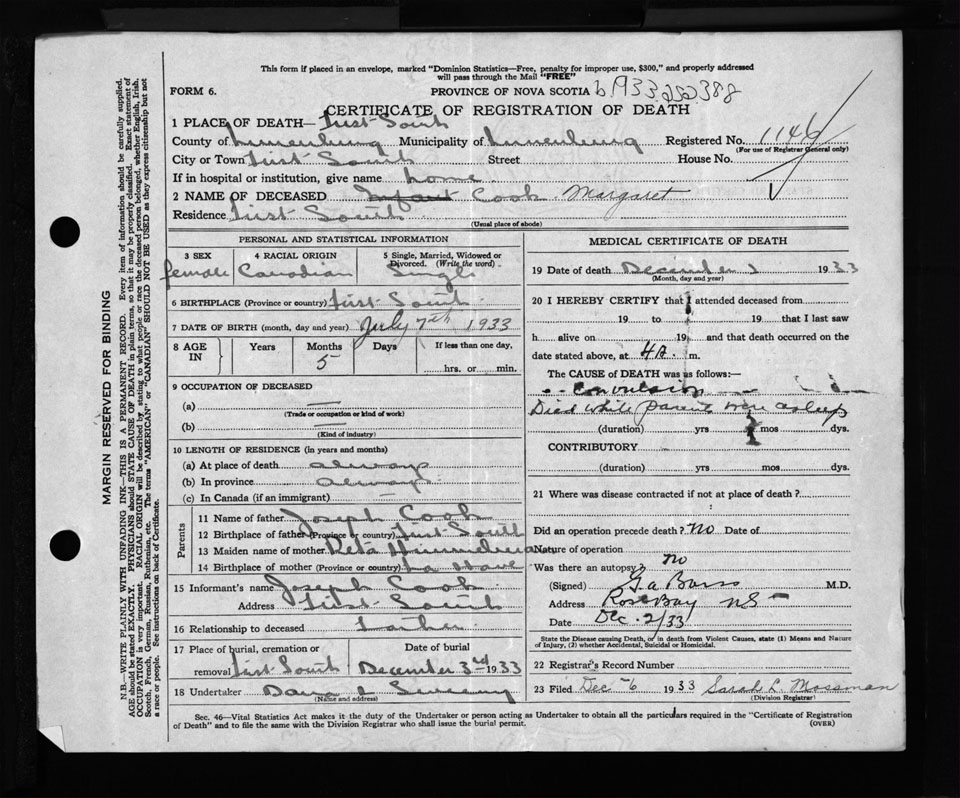 This form if placed in an envelope, marked "Dominion Statistics—Free, penalty for improper use, $300," and properly addressed
will pass through the Mail "FREE"
FORM 6.
PROVINCE OF NOVA SCOTIA
CERTIFICATE OF REGISTRATION OF DEATH
1 PLACE OF DEATH— First South
County of Lunenburg Municipality of Lunenburg Registered No. 1146
(For use of Registrar General only)
City or Town First South Street House No.
If in hospital or institution, give name home
2 NAME OF DECEASED Infant Cook Margaret
Residence First South
(Usual place of abode)
PERSONAL AND STATISTICAL INFORMATION
3 SEX 4 RACIAL ORIGIN 5 Single, Married, Widowed or
Divorced. (Write the word)
female Canadian Single
6 BIRTHPLACE (Province or country) First South
7 DATE OF BIRTH (month, day and year) July 7th 1933
8 AGE IN Years Months Days If less than one day,
5
hrs. or min.
9 OCCUPATION OF DECEASED
(a) —
(Trade or occupation or kind of work)
(b) —
(Kind of industry)
10 LENGTH OF RESIDENCE (in years and months)
(a) At place of death always
(b) In province always
(c) In Canada (if an immigrant) —
Parents
11 Name of father Joseph Cook
12 Birthplace of father (Province or country) First South
13 Maiden name of mother Reta
14 Birthplace of mother (Province or country) La Have
15 Informant's name Joseph Cook
Address First South
16 Relationship to deceased Father
17 Place of burial, cremation or Date of burial
removal First South December 3rd 1933
18 Undertaker
(Name and address)
MEDICAL CERTIFICATE OF DEATH
19 Date of death December 1933
(Month, day and year)
20 I HEREBY CERTIFY that I attended deceased from
19 to 19 that I last saw
h alive on 19 and that death occurred on the
date stated above, at 4 A. m.
The CAUSE of DEATH was as follows:—
Convulsion
Died while parents were asleep
(duration) yrs mos dys.
CONTRIBUTORY
(duration) yrs. mos. dys.
21 Where was disease contracted if not at place of death?
Did an operation precede death? no Date of
Nature of operation
Was there an autopsy? no
(Signed) M.D.
Address Rose Bay NS
Date Dec. 2/33
State the Disease causing Death, or in death from Violent Causes, state (1) Means and Nature
of Injury, (2) whether Accidental, Suicidal or Homicidal.
22 Registrar's Record Number
23 Filed Dec 6 1933 Sarah L. Mossman
(Division Registrar)
Sec. 46—Vital Statistics Act makes it the duty of the Undertaker or person acting as Undertaker to obtain all the particulars required in the "Certificate of Registration
of Death" and to file the same with the Division Registrar who shall issue the burial permit.
(OVER)
MARGIN RESERVED FOR BINDING
N.B.—WRITE PLAINLY WITH UNFADING INK—THIS IS A PERMANENT RECORD. Every item of information should be carefully supplied.
AGE should be stated EXACTLY. PHYSICIANS should STATE CAUSE OF DEATH in plain terms, so that it may be properly classified. Exact statement of
OCCUPATION is very important. RACIAL ORIGIN will be described by stating to what people or race the deceased person belonged, whether English, Irish,
Scotch, French, German, Russian, Ruthenian, etc. The terms "AMERICAN" or "CANADIAN" SHOULD NOT BE USED as they express citizenship but not
a race or people. See instructions on back of Certificate.